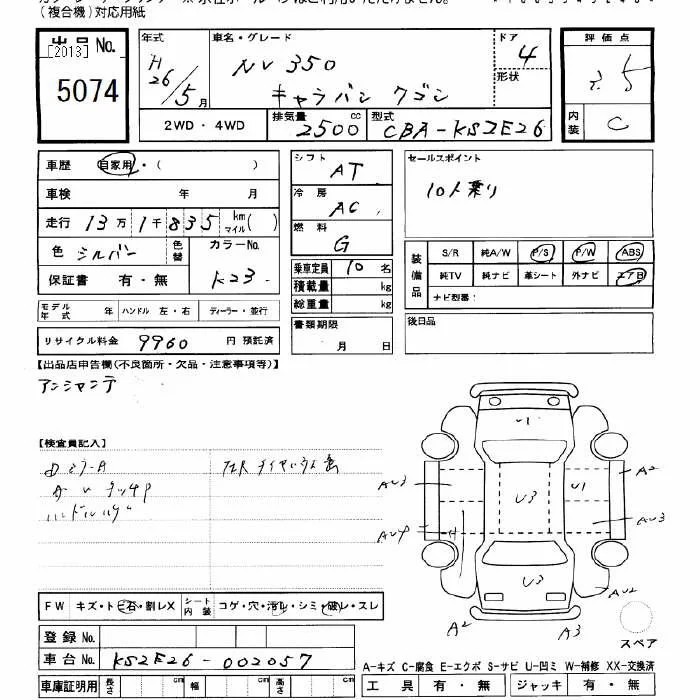 (複合機)対応用紙
出品No.
[2013]
5074
年式
H26/5月
車名・グレード
NV350
キャラバン ワゴン
ドア
4
形状
評価点
3.5
内装
C
2WD・4WD
排気量
2500 cc
型式
CBA-KS2E26
車歴 自家用・( )
車検 年 月
走行 13万1千835 km マイル( )
色 シルバー 色替 カラーNo. K23
保証書 有・無
モデル年式 年 ハンドル 左・右 ディーラー・並行
リサイクル料金 9960 円 預託済
シフト AT
冷房 AC
燃料 G
乗車定員 10 名
積載量 kg
総重量 kg
書類期限
月 日
セールスポイント
10人乗り
装備品
S/R 純A/W P/S P/W ABS
純TV 純ナビ 革シート 外ナビ エアB
ナビ型番:
後日品
【出品店申告欄(不良箇所・欠品・注意事項等)】
アンシャンテ
【検査員記入】
U1
AU3 U3 U1 A2
AU4 AU3
U3 AU2
A2 A3
スペア
FW キズ・トビ石・割レX シート内装 コゲ・穴・汚レ・シミ・破レ・スレ
登録No.
車台No. KS2E26-002057
車庫証明用 長さ cm 幅 cm 高さ cm
A-キズ C-腐食 E-エクボ S-サビ U-凹ミ W-補修 XX-交換済
工具 有・無 ジャッキ 有・無